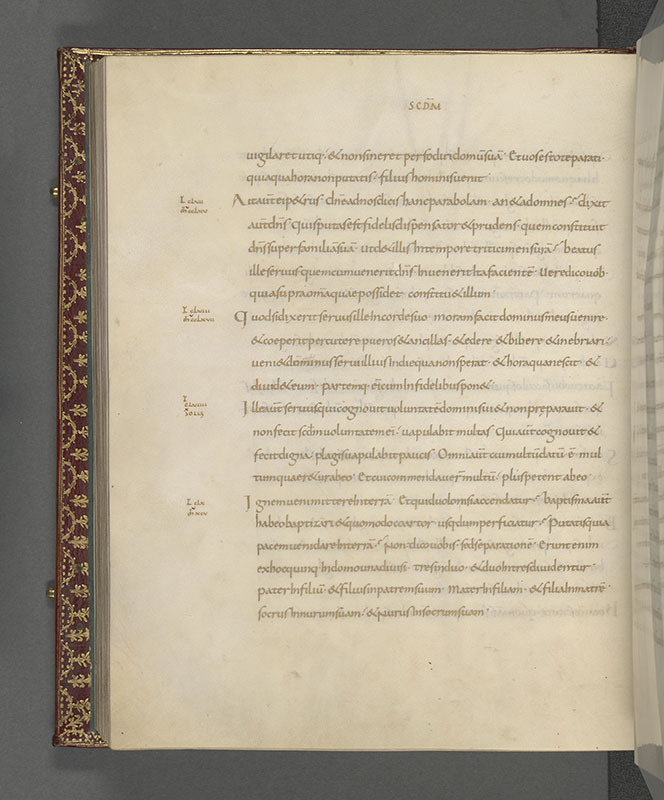 SCDM
vigilaret utiq· & non sineret perfodiri domū suā· Et vos estote parati·
quia qua hora non putatis· filius hominis venit
Ait aut̄ ei p&rus· dn̄e ad nos dicis hanc parabolam· an & ad omnes· dixit
aut̄ dn̄s· Quis putas est fidelis dispensator & prudens· quem constituit
dn̄s super familiā suā· ut d& illis In tempore tritici mensurā· beatus
ille servus quem cum venerit dn̄s· Invenerit Ita facientē· Vere dico vob·
quia supra omā quae possidet· constitu& illum·
Quod si dixerit servus ille In corde suo· moram facit dominus meus venire·
& coeperit percutere pueros & ancillas· & edere & bibere & inebriari·
veni& dominus servi illius In die qua non sperat· & hora qua nescit· &
divid& eum· partemq· eius cum Infidelibus pon&·
Ille aut̄ servus qui cognovit voluntatē domini sui & non preparavit· &
non fecit scd̄m voluntatem ei· vapulabit multas· Qui aut̄ non cognovit &
fecit digna· plagis vapulabit paucis· Omni aut̄ cui multū datū ē· mul
tum quaer&ur ab eo· Et cui commendaver̄ multū· plus petent ab eo·
Ignem veni mittere In terrā· Et quid volo nisi accendatur· baptisma aut̄
habeo baptizari & quomodo coartor· usq dum perficiatur· Putatis quia
pacem veni dare In terrā· Non dico vobis· sed separationē· Erunt enim
ex hoc quinq· In domo una divisi· tres In duo· & duo In tres dividentur·
pater In filiū· & filius In patrem suum· Mater In filiam· & filia In matrē·
socrus In nurum suam· & nurus In socrum suam·